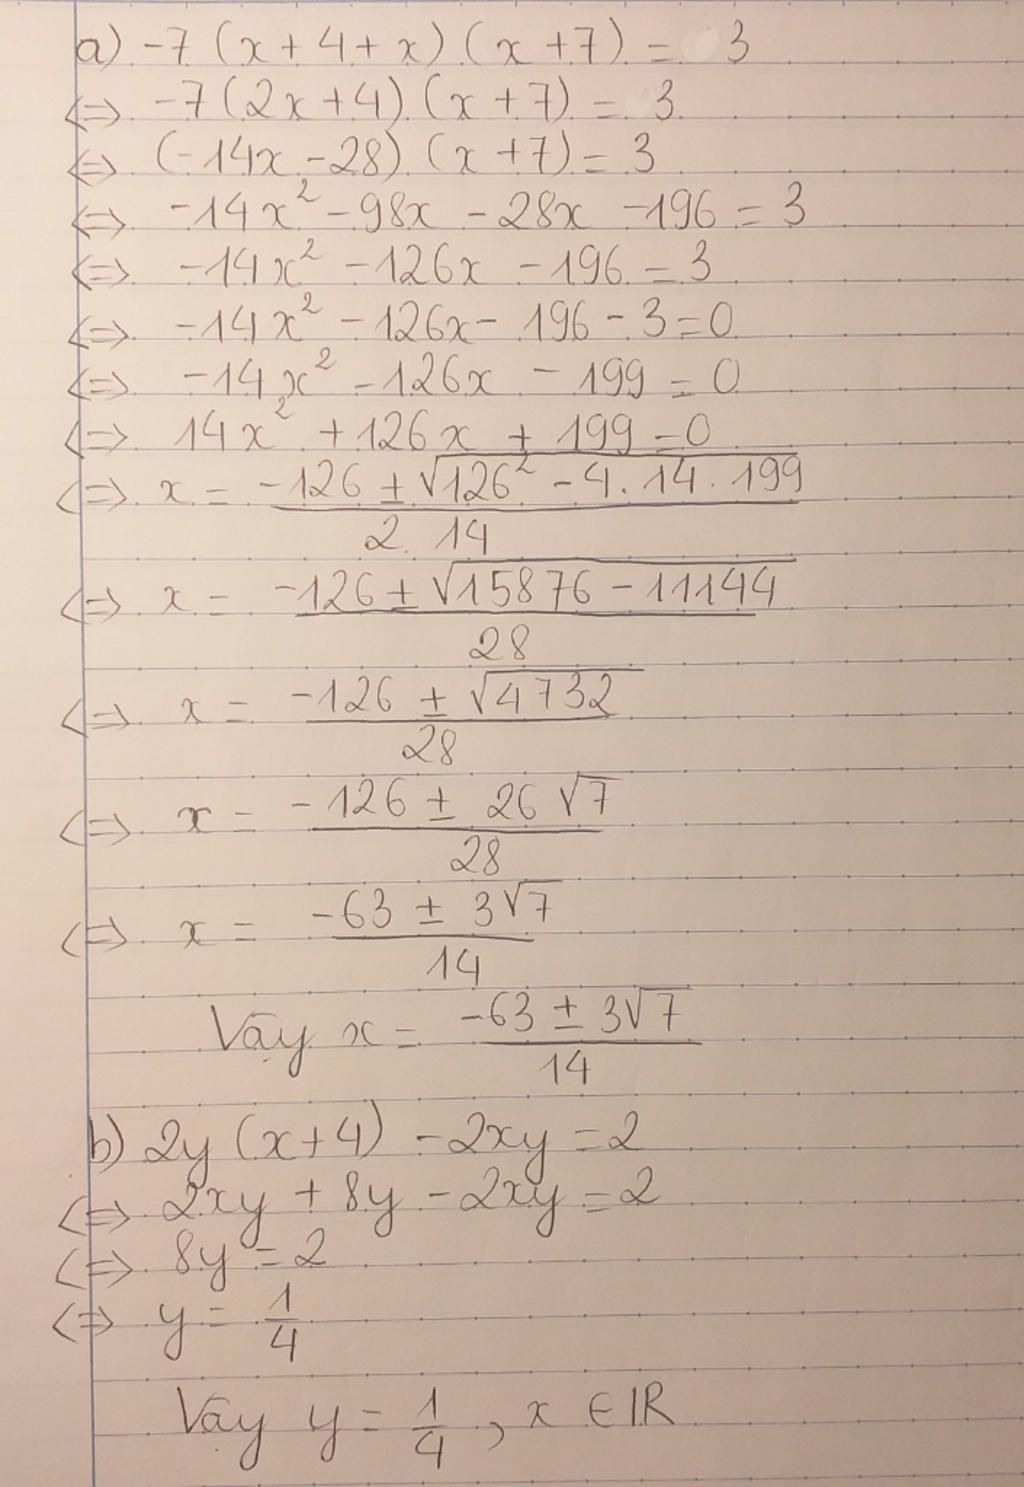 a) -7 (x + 4 + x) (x + 7) = 3
<=> -7 (2x + 4) (x + 7) = 3
<=> (-14x - 28) (x + 7) = 3
<=> -14x² - 98x - 28x - 196 = 3
<=> -14x² - 126x - 196 = 3
<=> -14x² - 126x - 196 - 3 = 0
<=> -14x² - 126x - 199 = 0
<=> 14x² + 126x + 199 = 0
<=> x = \frac{-126 ± \sqrt{126² - 4 . 14 . 199}}{2 . 14}
<=> x = \frac{-126 ± \sqrt{15876 - 11144}}{28}
<=> x = \frac{-126 ± \sqrt{4732}}{28}
<=> x = \frac{-126 ± 26\sqrt{7}}{28}
<=> x = \frac{-63 ± 3\sqrt{7}}{14}
Vậy x = \frac{-63 ± 3\sqrt{7}}{14}
b) 2y (x + 4) - 2xy = 2
<=> 2xy + 8y - 2xy = 2
<=> 8y = 2
<=> y = \frac{1}{4}
Vậy y = \frac{1}{4} , x ∈ IR